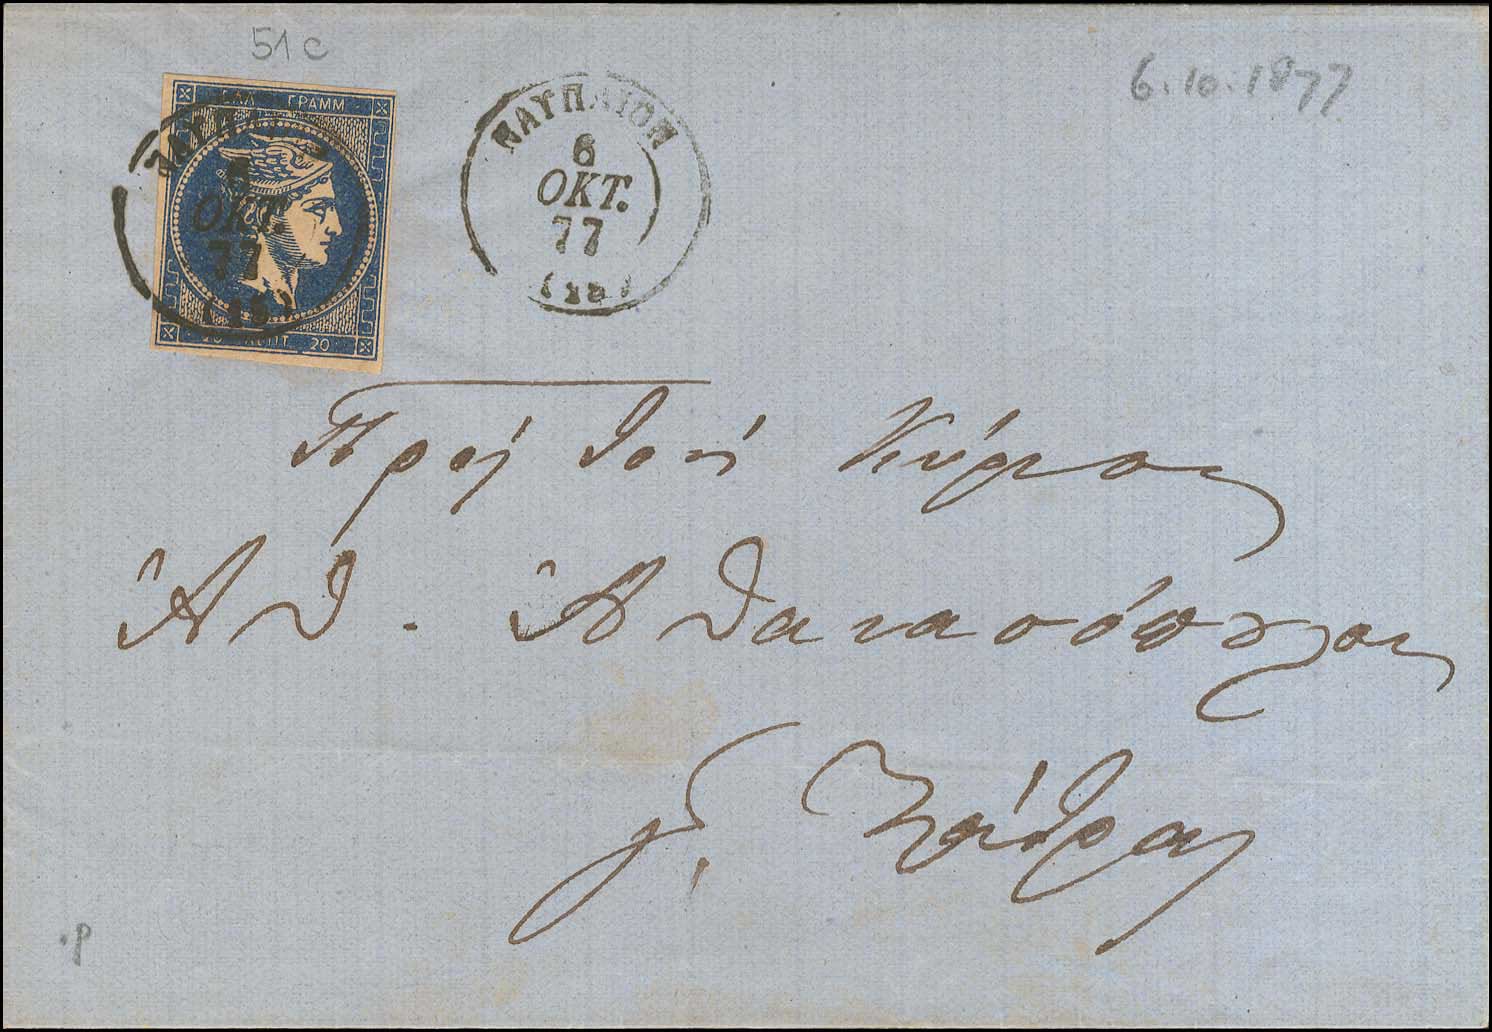 51c
6.10.1877
ΕΛΛ ΓΡΑΜΜ
20 ΛΕΠΤ. 20
ΝΑΥΠ
6
ΟΚΤ.
77
(18)
ΝΑΥΠΛΙΟΝ
6
ΟΚΤ.
77
(18)
Πρὸς τὸν Κύριον
Ἀθ. Ἀθανασόπουλον
Πάτρας
.p